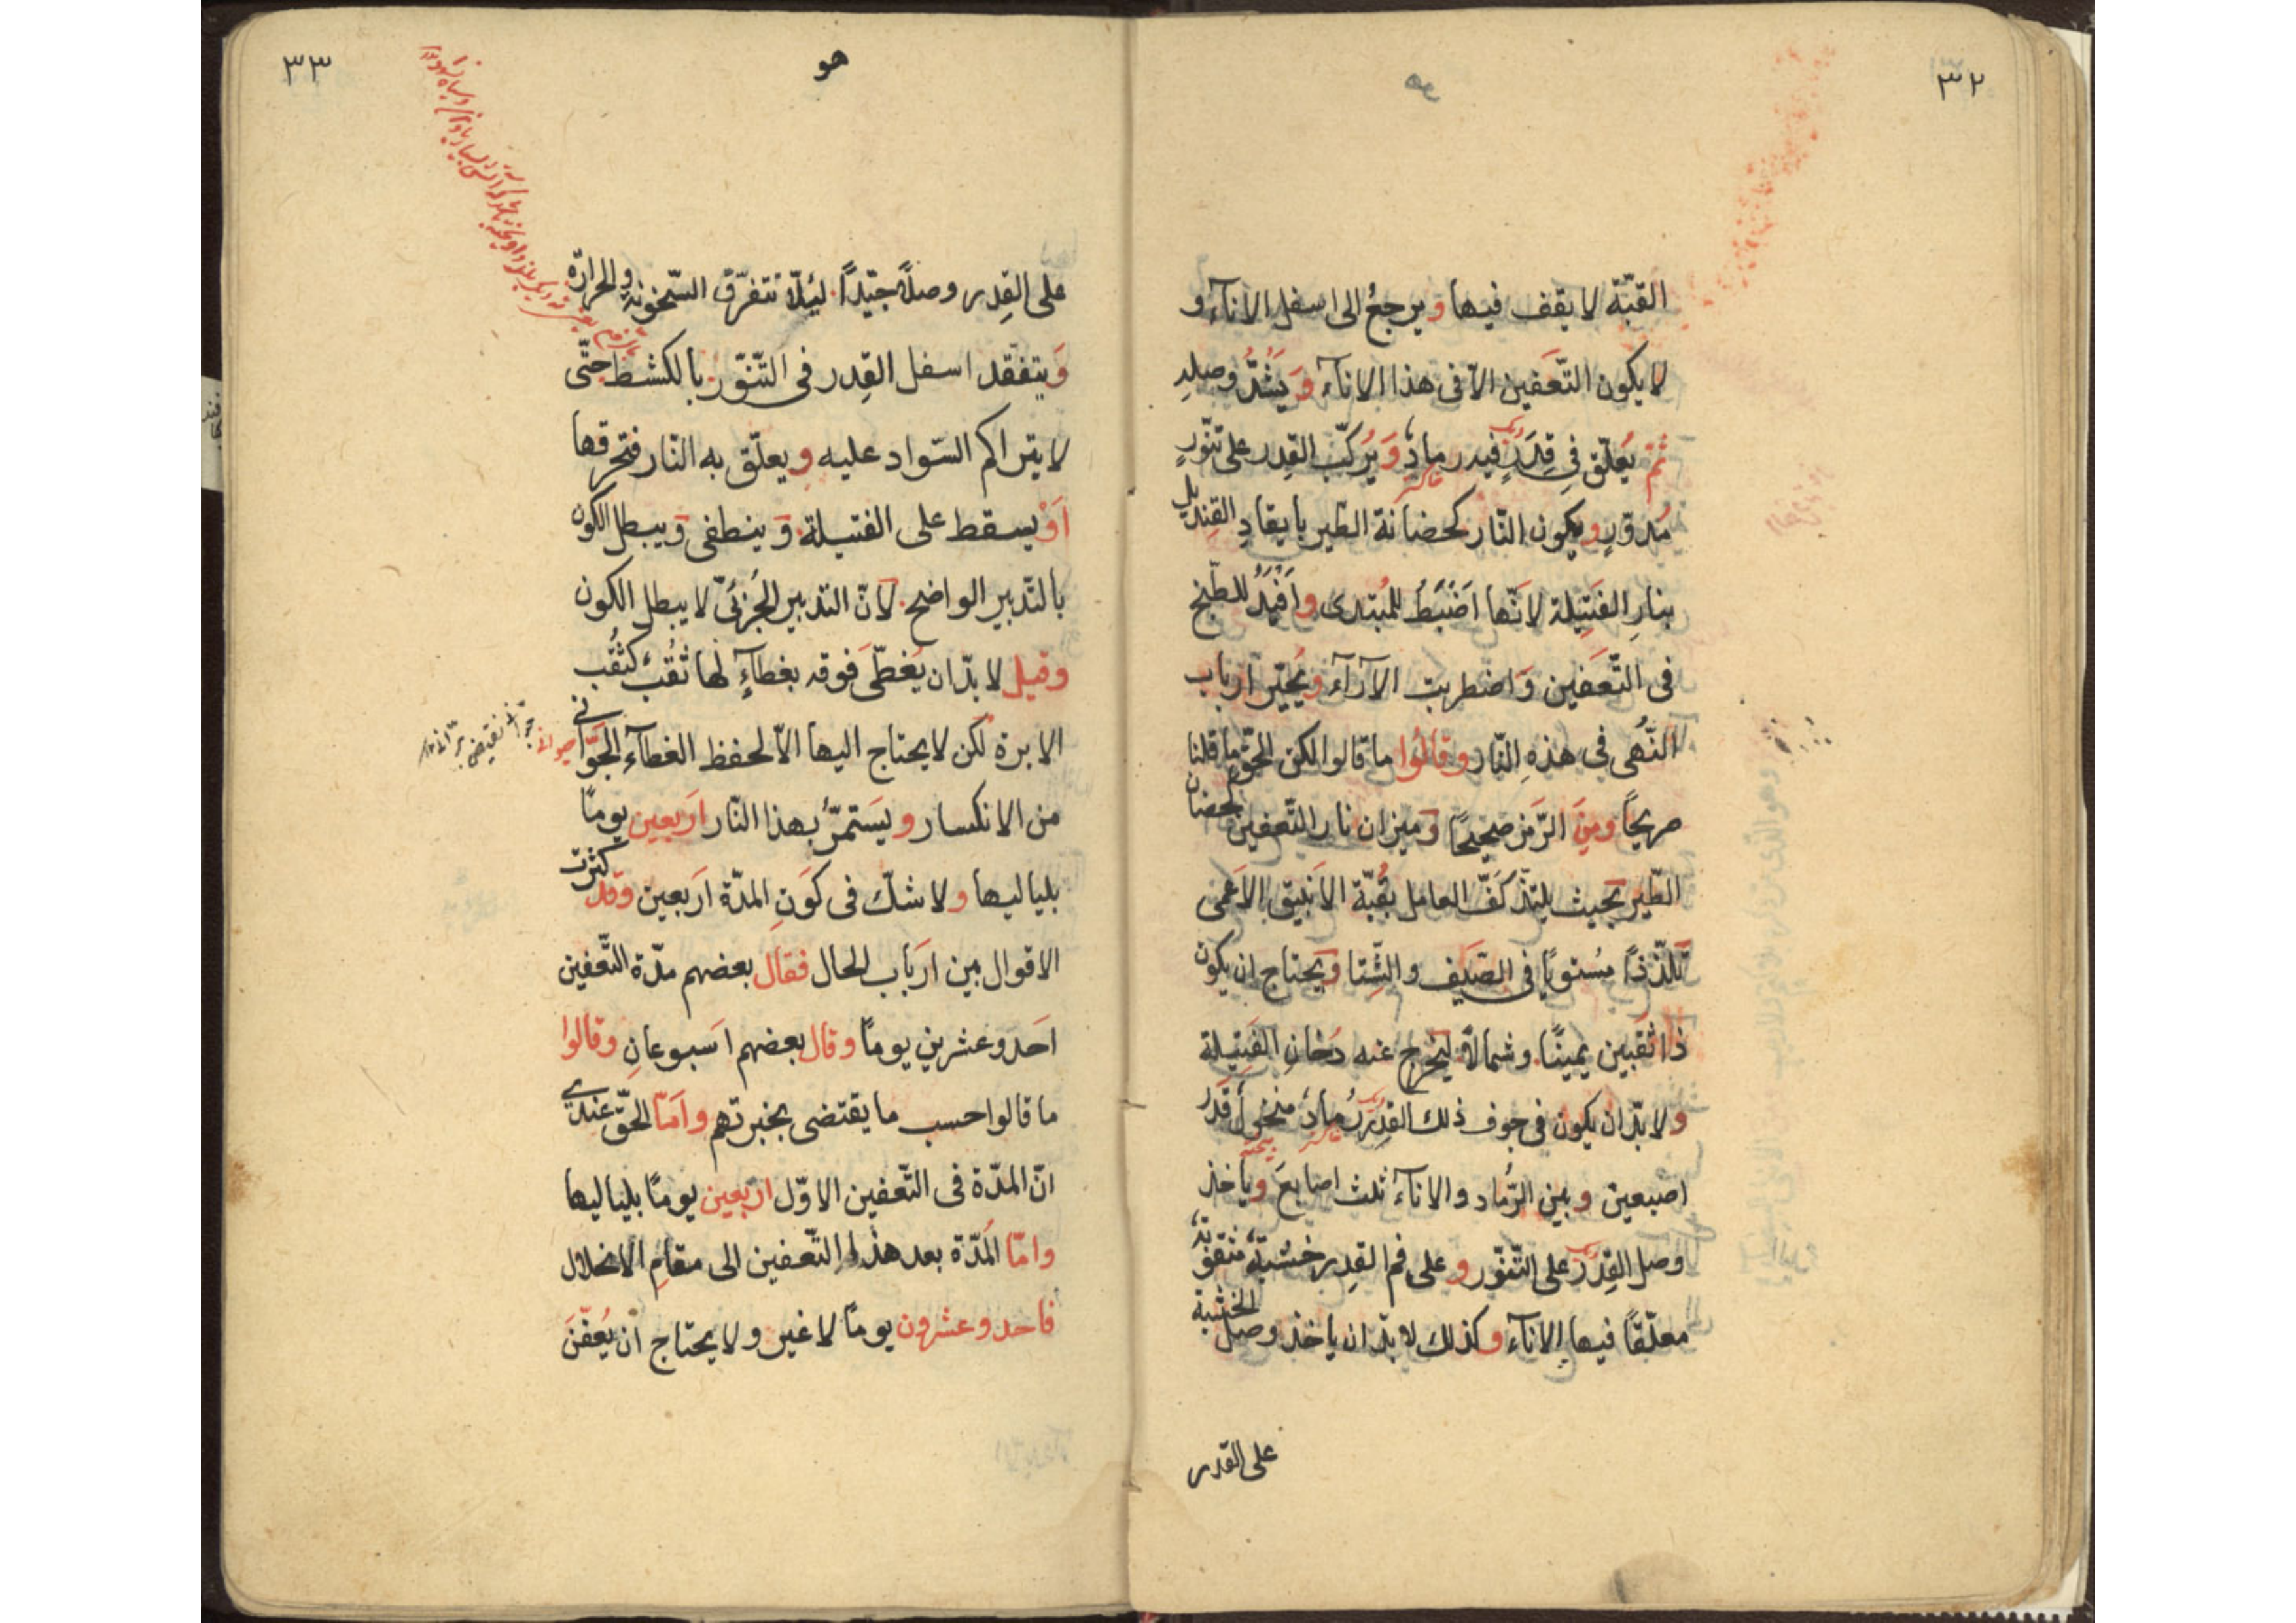 ٣٢
هو
القبّة لا يقف فيها و يرجعُ الى اسفل الاناۤء و
لا يكون التّعَفين الّا فى هذا الاناۤء وَ يَشُدُّ وصله
ثمّ يُعلّق فى قِدَرٍ فيه رمادٌ وَ يُركّب القِدر على تنّورٍ
مُدوّرٍ و يكون النّار كحضانة الطّير بايقادِ القِنديل
بنارِ الفَتِيلة لانّها اَضْبَطُ للمُبتدى و اَفْيَدُ للطّبخ
فى التّعَفين وَ اضطربت الآراۤء و يُحيّر ارباب
النُّهى فى هذهِ النّار و قالُوا ما قالوا لكن الحقّ ما قلنا
صريحًا ومِنَ الرّمز صحيحًا وَ ميزان نار التّعفين كحضان
الطّير بحَيث يلتذّ كَفّ العامل بقُبّة الاَنبيق الاَعمى
تَلذّذًا مُستويًا فى الصَيف و الشِّتا وَ يَحتاج ان يكون
ذا ثقبين يمينًا و شمالاً ليَخرج عنه دُخان الفَتِيلة
و لا بدّ ان يكون فى جوف ذلك القِدرِ رمادٌ منخولٌ قَدرُ
اصبعين و بين الرَّماد و الاناۤء ثلث اصابعَ و يأخذ
وصل القِدرَ على التّنّور و على فم القدر خَشَبَةٌ مثقوبةٌ
معلّقًا فيها الاناۤء و كذلك لا بدّ ان ياخذ وصل الخشبة
على القدر
٣٣
هو
على القِدر وصلاً جيّدًا لئلّا تتفرّق السّخونة و الحرارة
وَ يتفقد اسفل القِدر فى التّنّور بالكشط حتّى
لا يتراكم السّواد عليه و يعلّق به النّار فتحرقها
اَوْ يسقط على الفتيلة وَ ينطفى وَ يبطل الكون
بالتّدبير الواضح لانّ التدبير الجُزئىّ لا يبطل الكون
وقيل لا بدّ ان يُغَطّى فوقه بغطاۤءٍ لها ثُقُبٌ كثُقُب
الابرة لكن لا يحتاج اليها الّا لحفظ الغطاۤء الجَوّانى
من الانكسار و يَستمرّ بهذا النّار اَربعين يومًا
بلياليها و لا شكّ فى كَونِ المدّة اَربعين وقد كثرت
الاقوال بين اَرباب الحال فقال بعضهم مدّة التّعفين
اَحَد و عشرين يومًا وقال بعضهم اَسبوعانِ وقالوا
ما قالوا حسب ما يقتضى بخبرتهم و اَمّا الحقّ عندى
انّ المدّة فى التّعفين الاوّل اربعين يومًا بلياليها
و امّا المُدّة بعد هذا التّعفين الى مقامِ الانحلال
فاحد و عشرون يومًا لا غير و لا يحتاج ان يُعفّنَ